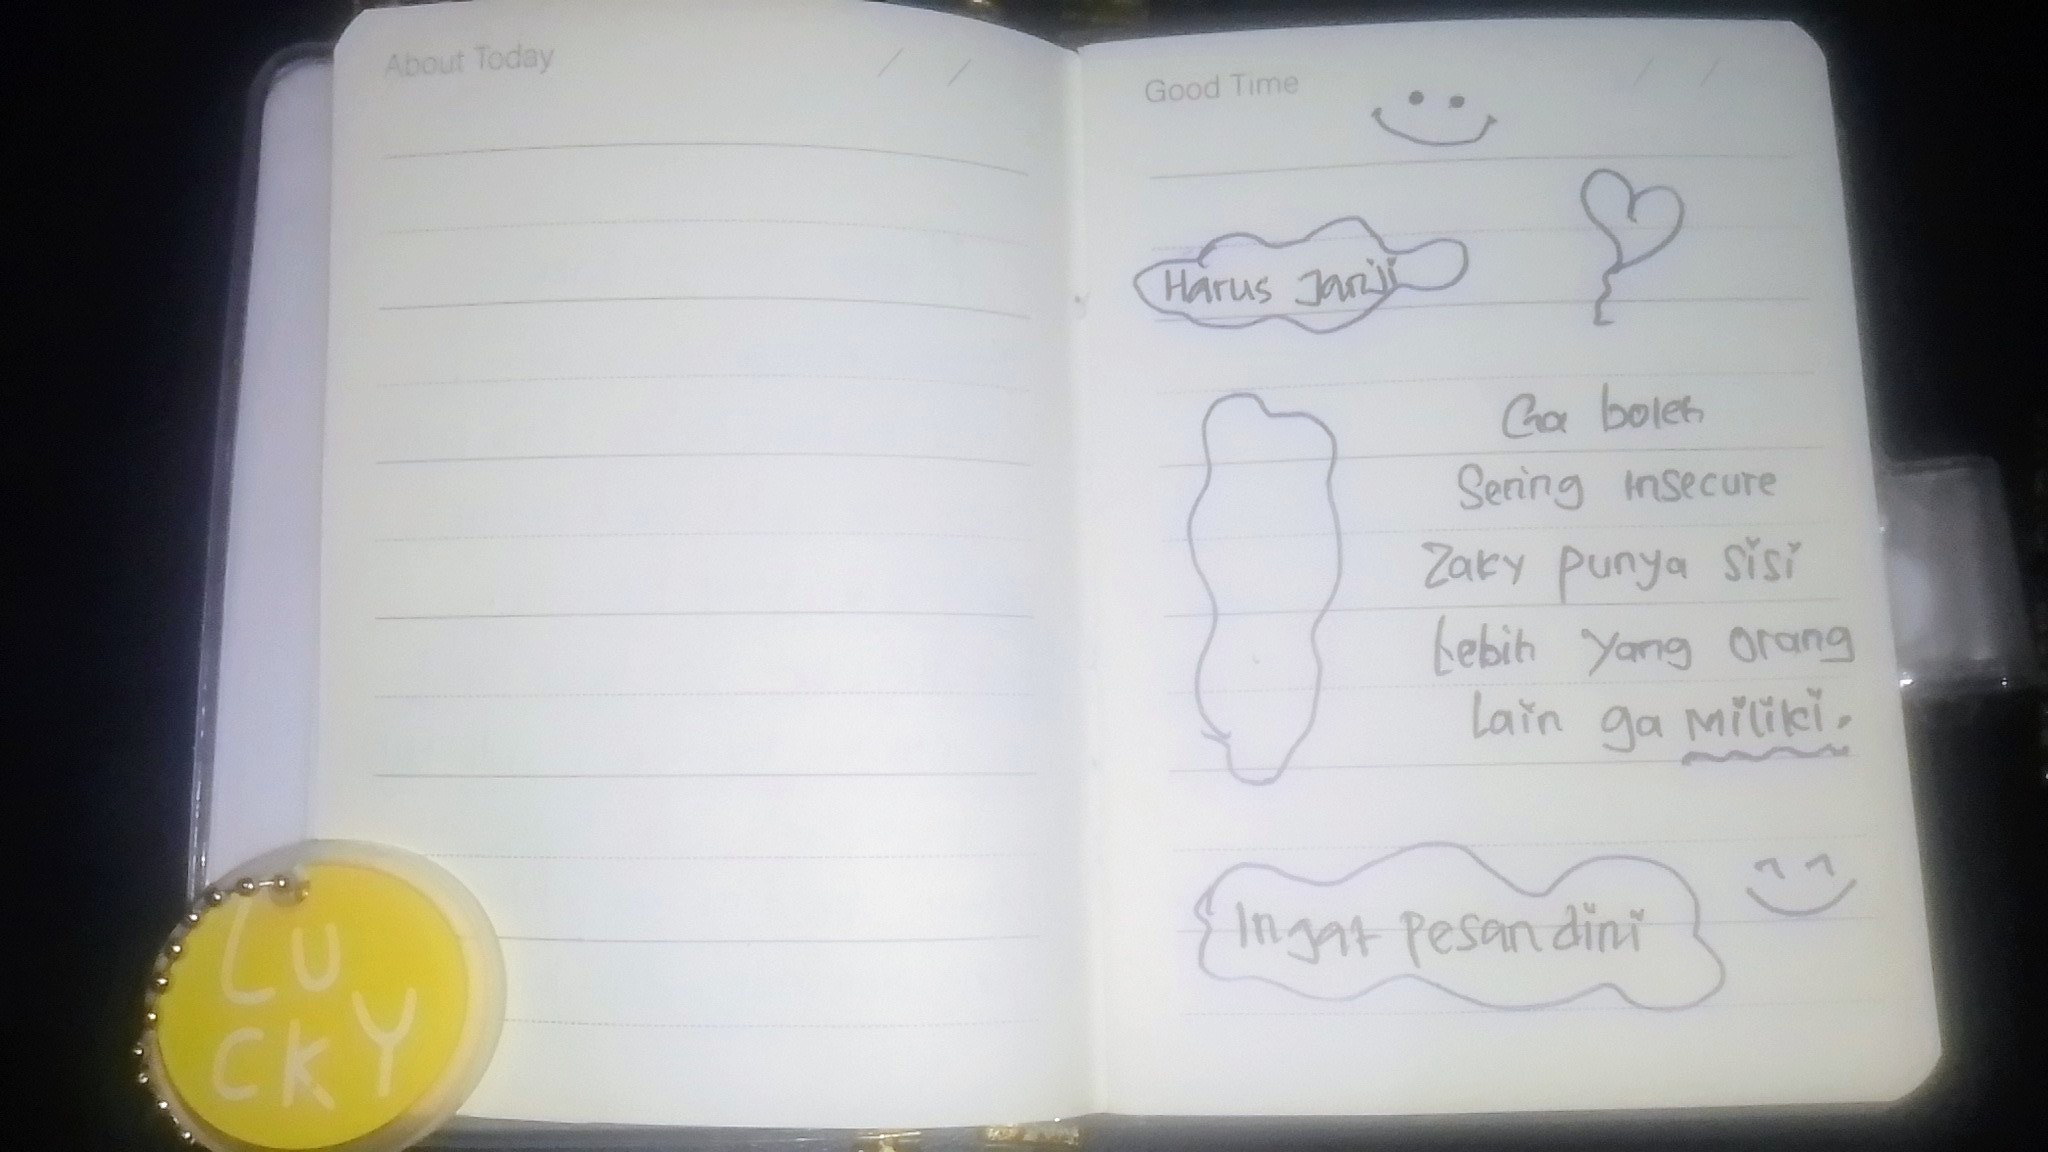 About Today
/ /
Good Time
/ /
Harus Janji
Ga boleh
Sering insecure
Zaky punya sisi
Lebih yang orang
Lain ga miliki.
Ingat pesan dini
LU
CKY